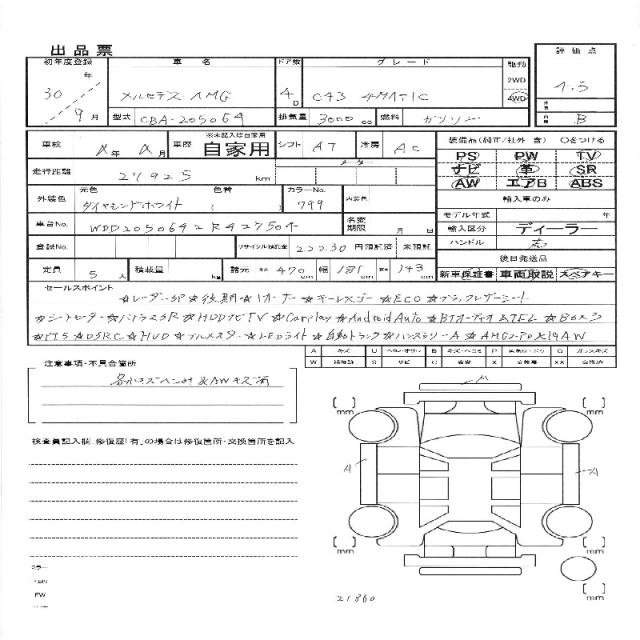 出品票
初年度登録 車名 ドア数 グレード 駆動 評価点
30年 メルセデス AMG 4D C43 4MATIC 2WD 4WD 4.5
9月 型式 CBA-205064 排気量 3000cc 燃料 ガソリン B
車検 年 月 車歴 ※未記入は自家用 自家用 シフト AT 冷房 AC 装備品(純正/社外 含) ○をつける
走行距離 27925 km メーター PS PW TV
ナビ 革 SR
AW エアB ABS
外装色 元色 ダイヤモンドホワイト 色替 カラーNo. 799 内装色 輸入車のみ
モデル年式 年
車台No. WDD2050642R427504 名変期限 月 日 輸入区分 ディーラー
登録No. リサイクル預託金 22230 円 預託済 未預託 ハンドル 右
後日発送品
定員 5人 積載量 kg 諸元 長さ 470cm 幅 181cm 高さ 143cm 新車保証書 車両取説 スペアキー
セールスポイント
☆レーダーSP☆後期☆1オーナー☆キーレスゴー☆ECO☆ブラックレザーシート
☆シートヒーター☆パノラマSR☆HDDナビTV☆Carplay☆AndroidAuto☆BTオーディオ&TEL☆Bカメラ
☆PTS☆DSRC☆HUD☆ブルメスター☆LEDライト☆自動トランク☆
注意事項・不具合箇所
A キズ U B P G ガラスキズ
W S C X XX
各小キズヘコミ
検査員記入欄(修復歴「有」の場合は修復箇所・交換箇所を記入)
A
A
A
[ ] mm
[ ] mm
[ ] mm
[ ] mm
21860